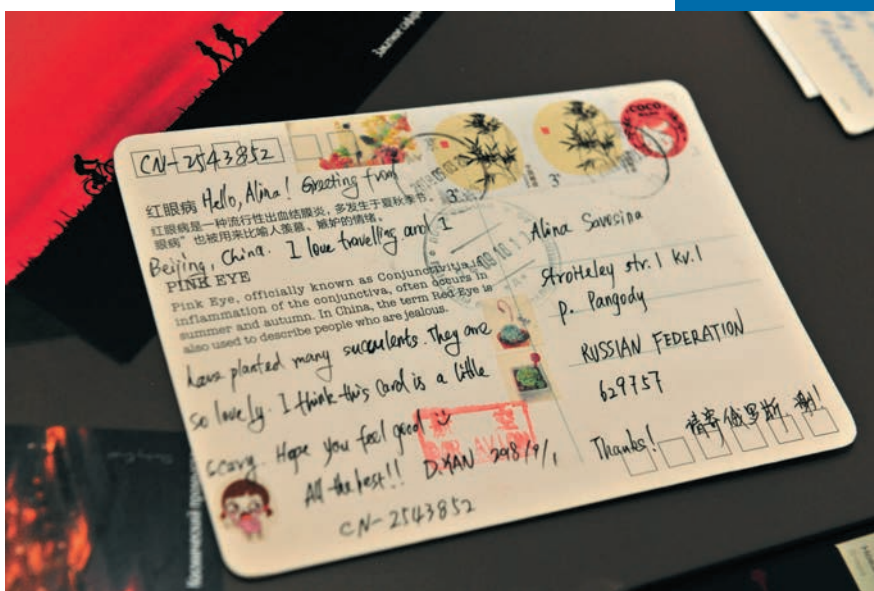 CN-2543852
Hello, Alina! Greeting from
红眼病
红眼病是一种流行性出血结膜炎，多发生于夏秋季节。
眼病”也被用来比喻人羡慕、嫉妒的情绪。
Beijing, China. I love travelling and I
PINK EYE
Pink Eye, officially known as Conjunctivitis is
inflammation of the conjunctiva, often occurs in
summer and autumn. In China, the term Red Eye is
also used to describe people who are jealous.
have planted many succulents. They are
so lovely. I think this card is a little
scary. Hope you feel good
All the best!! D.YAN
CN-2543852
COCO
3
3
Alina Savosina
str. 1 kv. 1
p. Pangody
RUSSIAN FEDERATION
629757
Thanks! 请寄俄罗斯 谢!